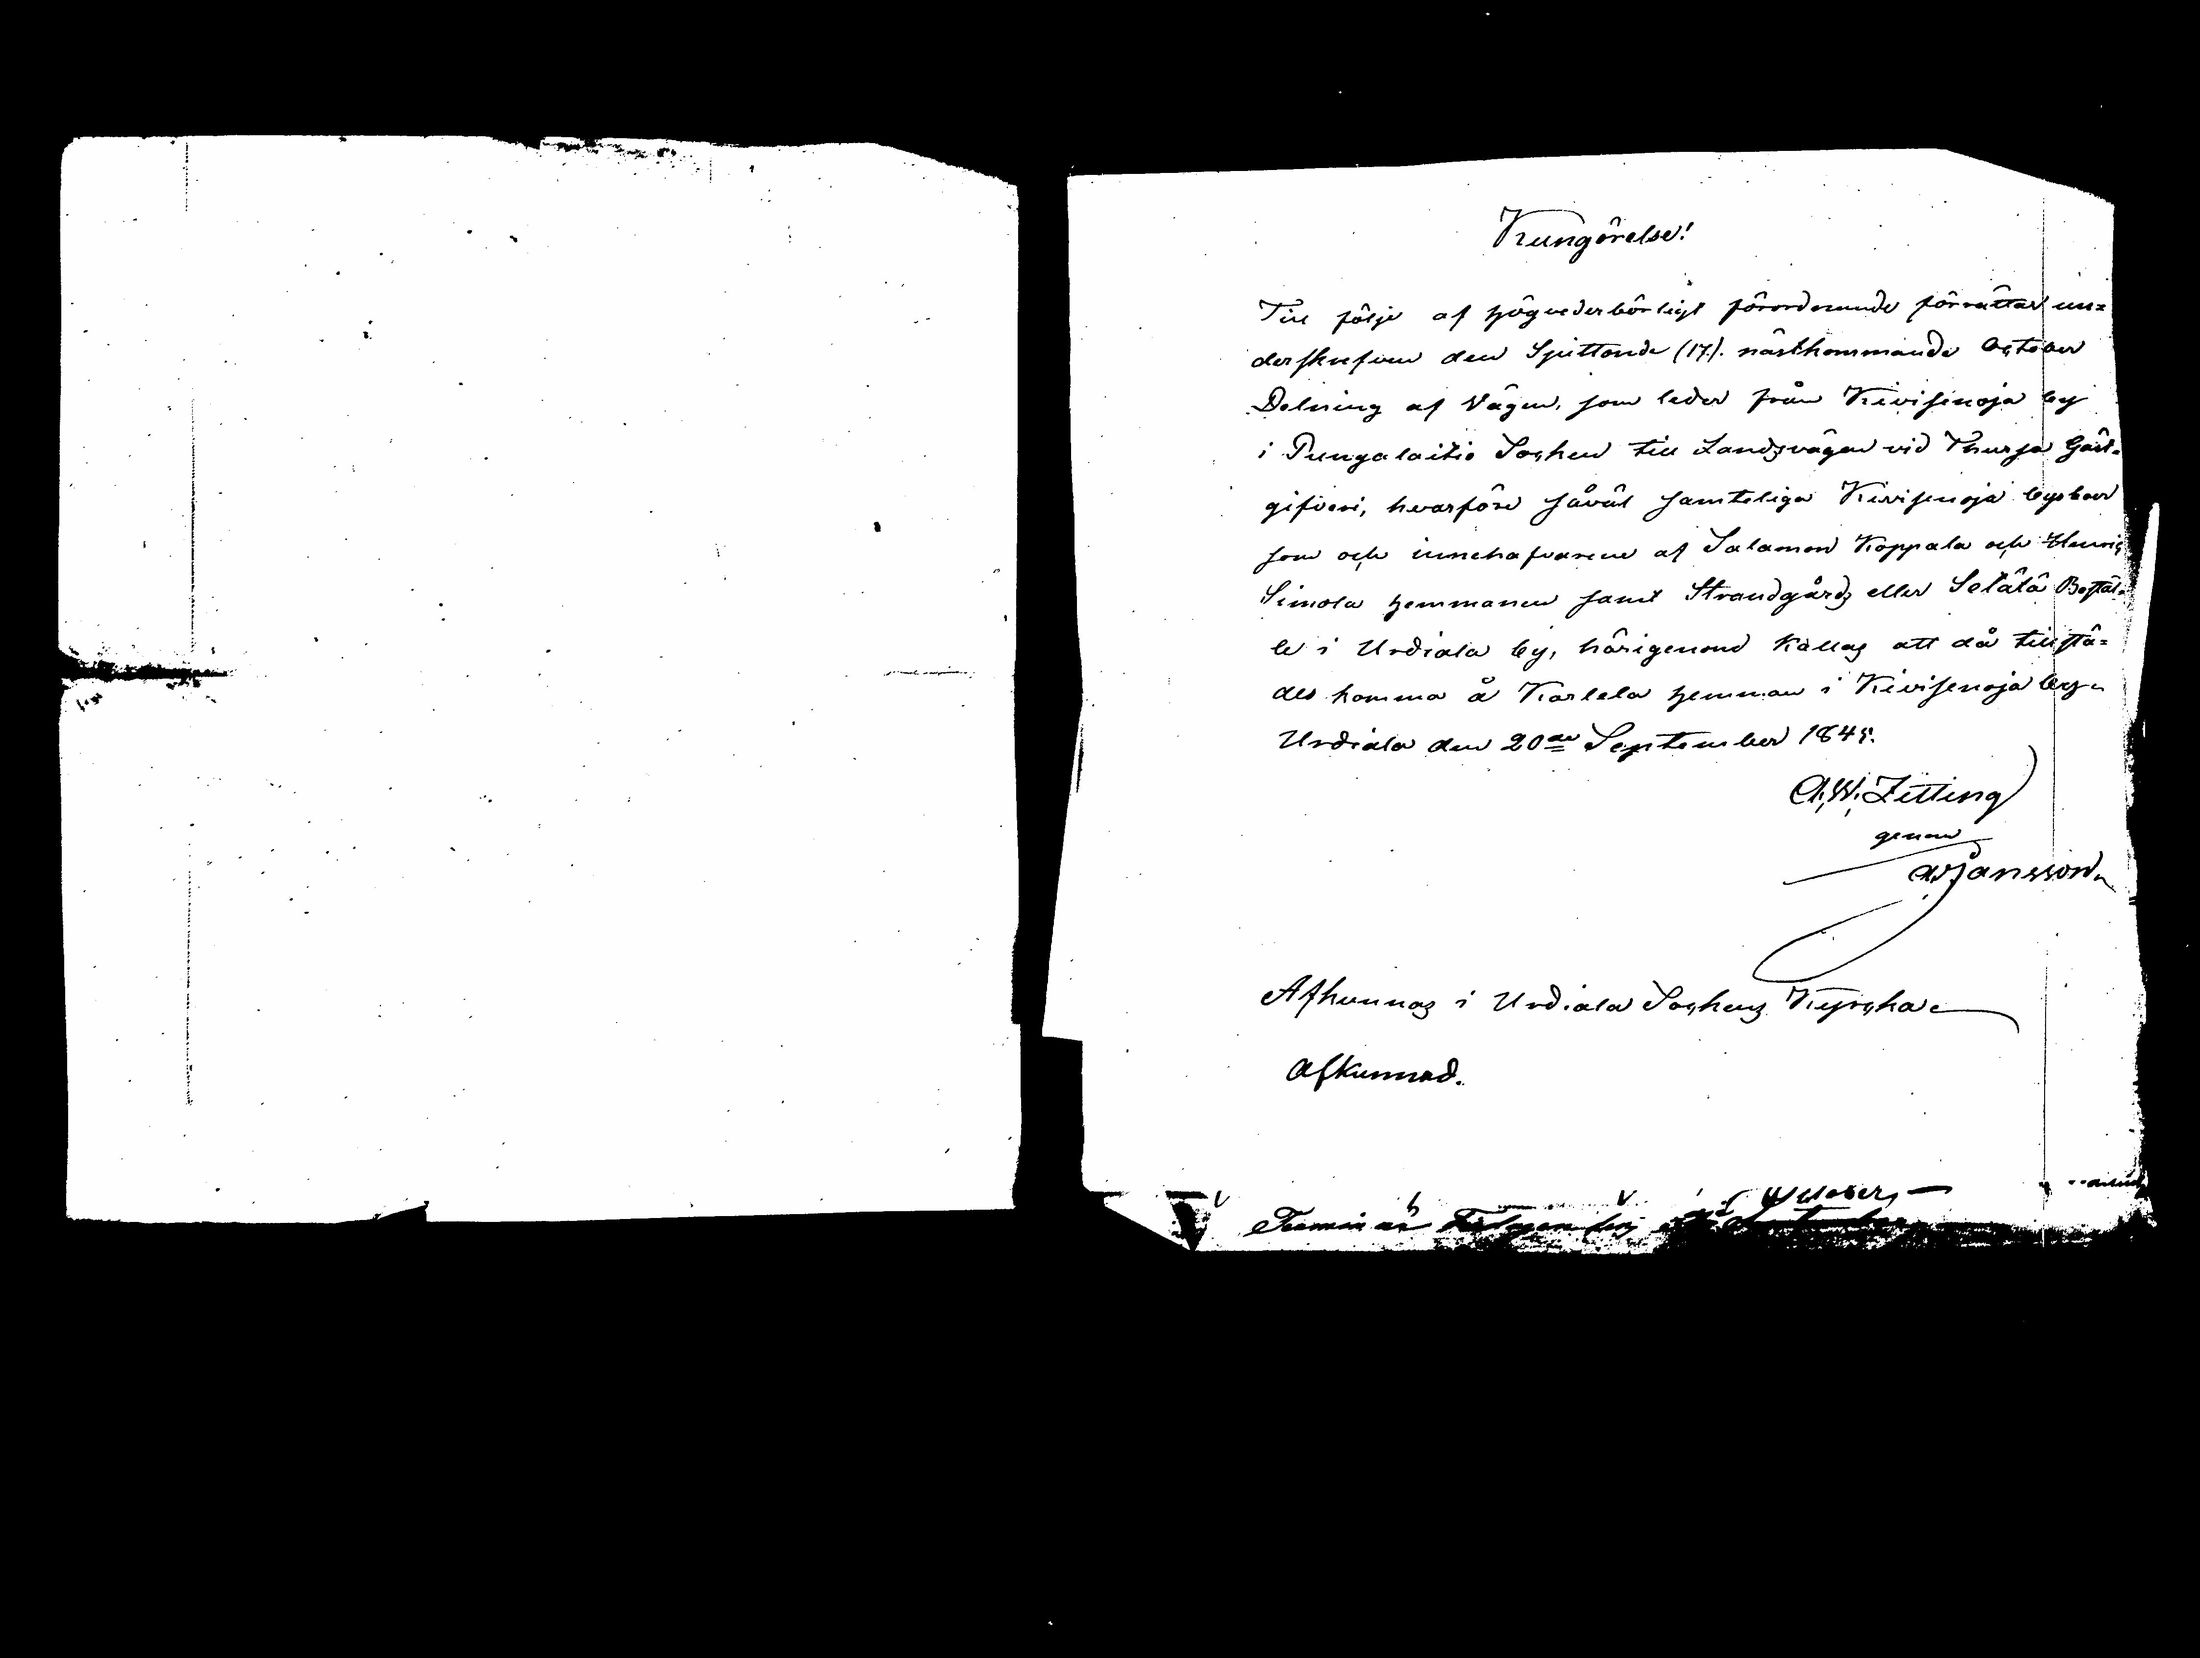 Kungörelse!
Till följe af högvederbörligt förordnande förrättar un=
derskrefven den Sjuttonde (17). nästkommande October
Delning af Vägen, som leder från Kivisenoja by
i Pungalaitio Sochen till Landsvägen vid Thursa Gäst=
gifveri, hvarföre såväl samteliga Kivisenoja byeboer
som och innehafvarene af Salamon Koppala och Henric
Simola hemmanen samt Strandgårds eller Setälä Bostäl=
le i Urdiala by, härigenom kallas att då tillstä=
des komma å Karlela hemman i Kivisenoja by.
Urdiala den 20de September 1845.
A. W. Zitting
genom
A. W. Jansson
Afkunnas i Urdiala Sochens Kyrcka
Afkunnad.
October,
Termin är